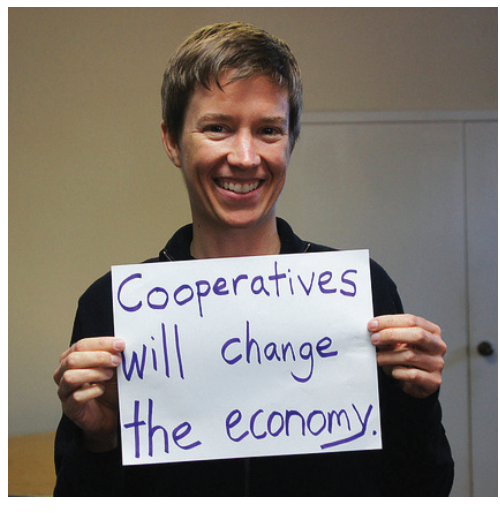 Cooperatives
will change
the economy.